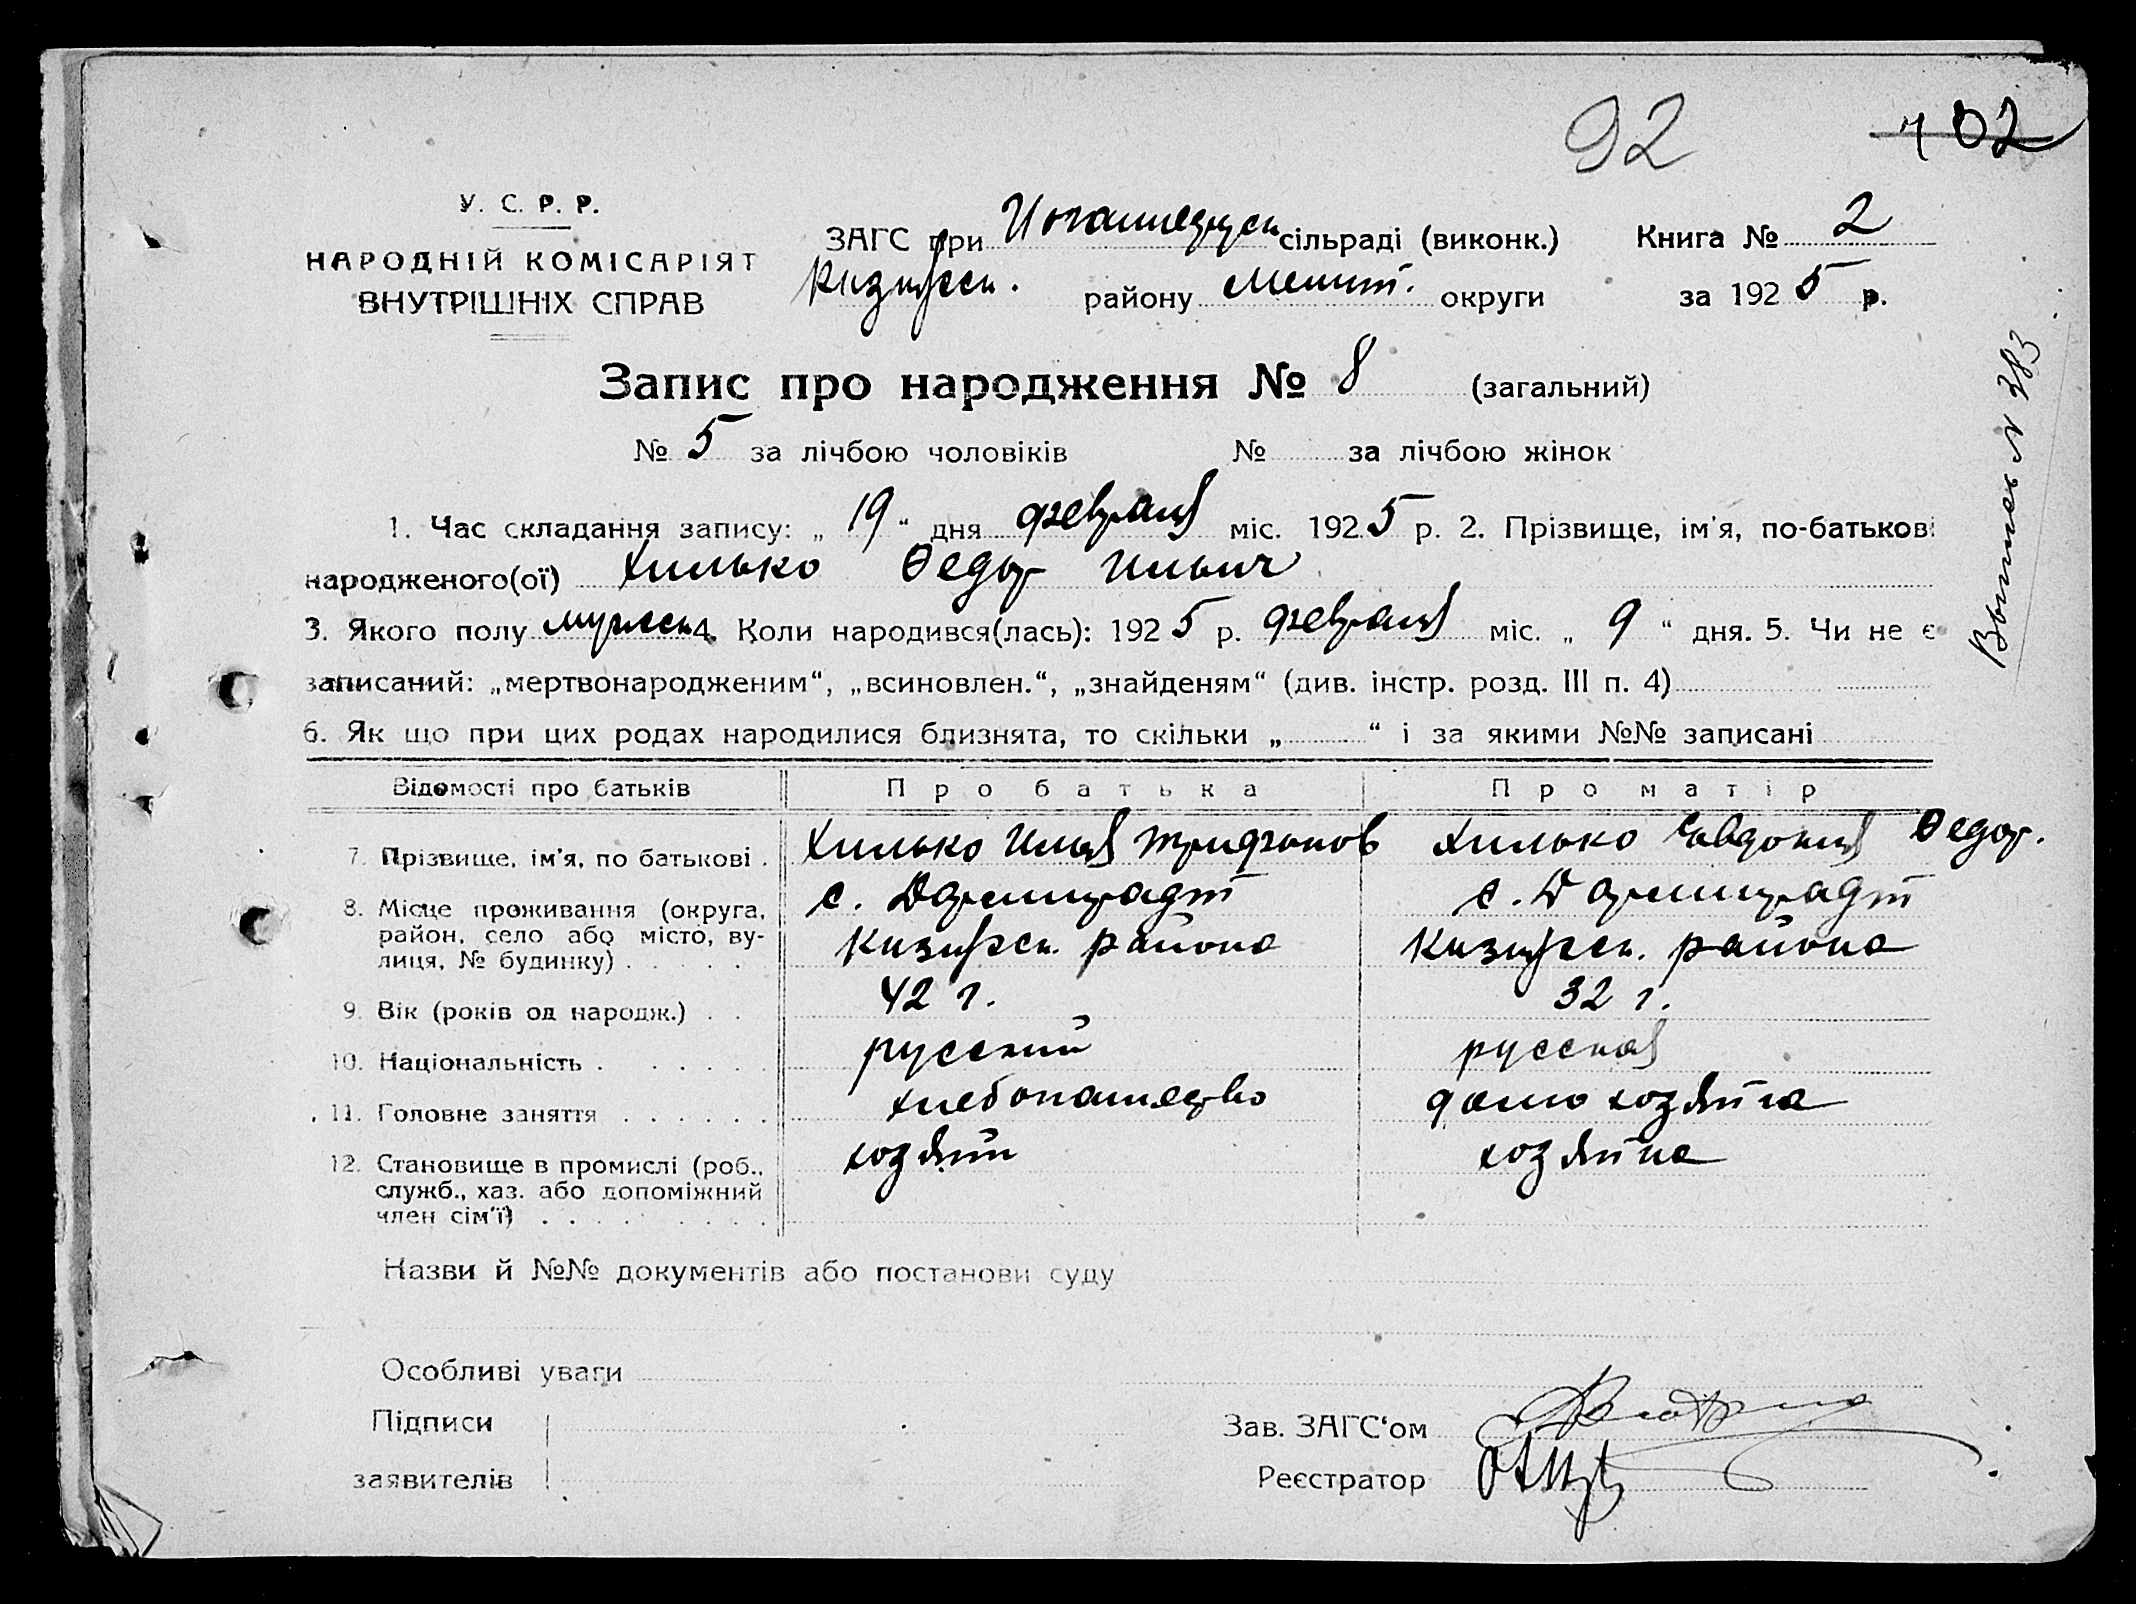 92 102
У. С. Р. Р.
НАРОДНІЙ КОМІСАРІЯТ
ВНУТРІШНІХ СПРАВ
ЗАГС при сільраді (виконк.) Книга № 2
району Мелит. округи за 1925 р.
Запис про народження № 8 (загальний)
№ 5 за лічбою чоловіків № за лічбою жінок
1. Час складання запису: „ 19 “ дня февраля міс. 1925 р. 2. Прізвище, ім'я, по-батькові
народженого(ої) Хилько Ѳедор Ильич
3. Якого полу мужск 4. Коли народився(лась): 1925 р. февраля міс. „ 9 “ дня. 5. Чи не є
записаний: „мертвонародженим“, „всиновлен.“, „знайденям“ (див. інстр. розд. III п. 4)
6. Як що при цих родах народилися близнята, то скільки „ “ і за якими №№ записані
Відомості про батьків Про батька Про матір
7. Прізвище, ім'я, по батькові . Хилько Илья Трифонов Хилько Евдокия Ѳедор.
8. Місце проживання (округа, с. Дармштадт с. Дармштадт
район, село або місто, ву- района района
лиця, № будинку) . . . . .
9. Вік (років од народж.) . . 42 г. 32 г.
10. Національність . . . . . . русский русская
11. Головне заняття . . . . . . хлебопашество домохозяйка
12. Становище в промислі (роб., хозяин хозяйка
служб., хаз. або допоміжний
член сім'ї) . . . . . . . . .
Назви й №№ документів або постанови суду
Особливі уваги
Підписи
заявителів
Зав. ЗАГС‘ом
Реєстратор
N 383